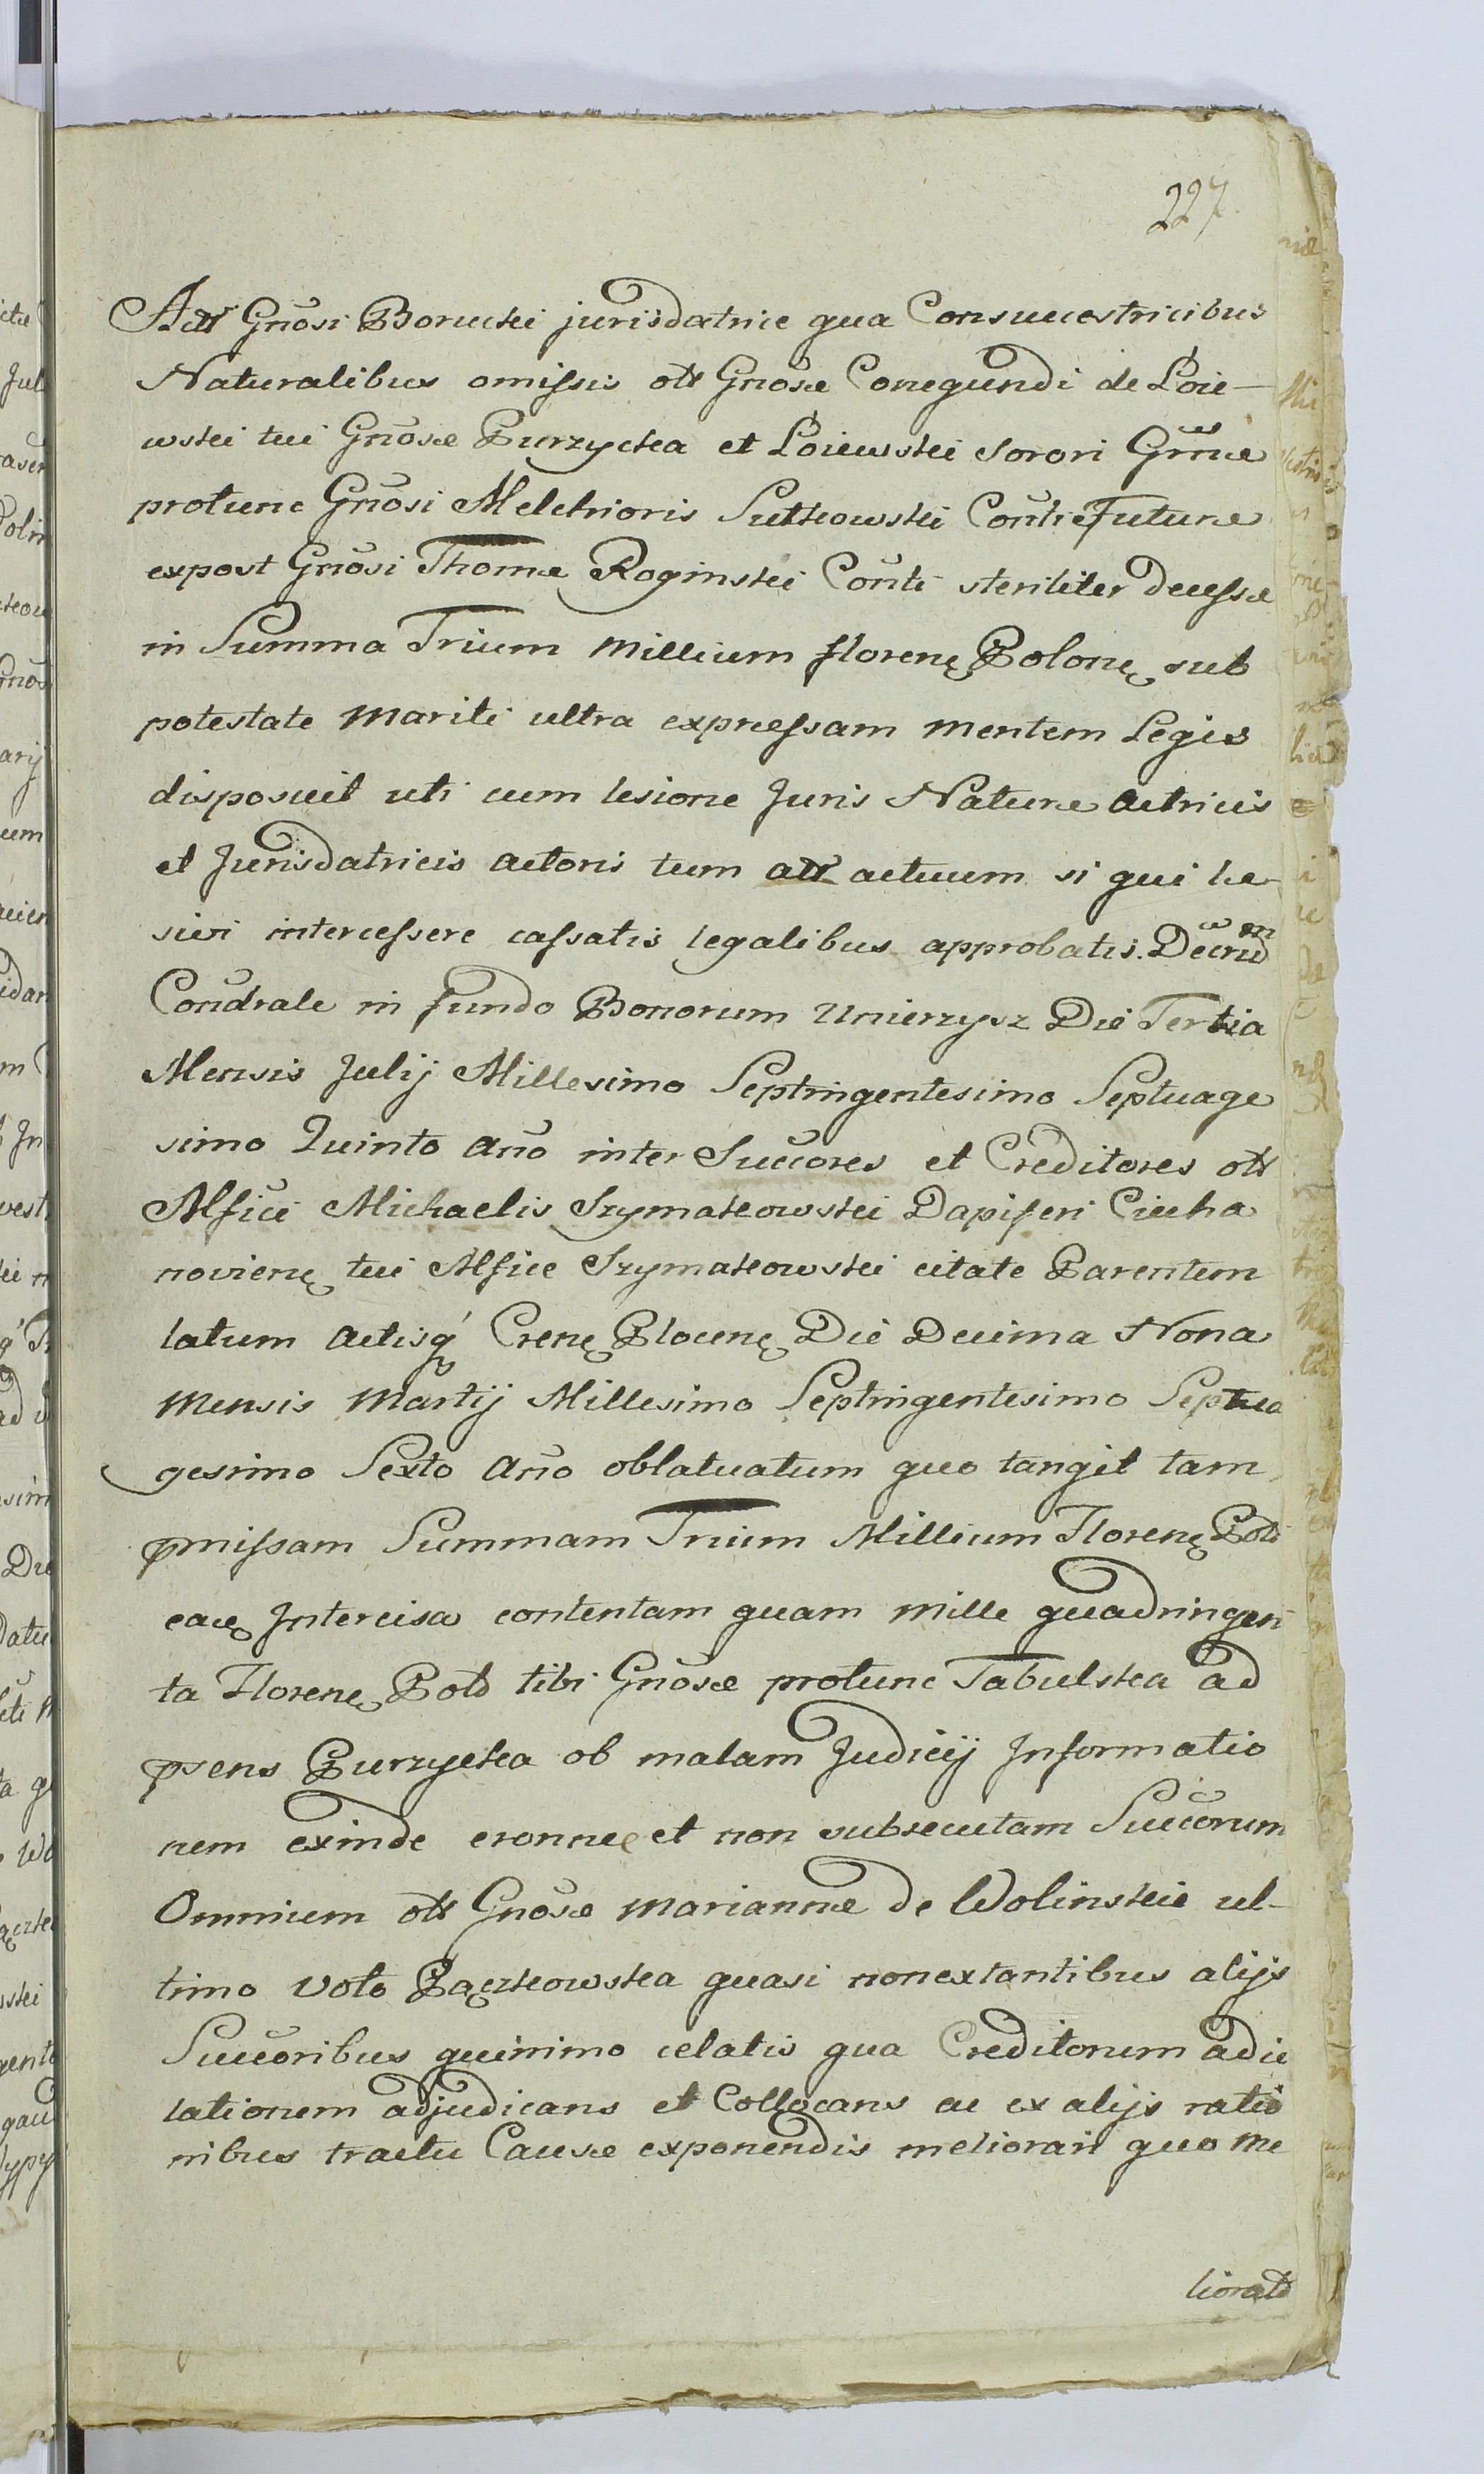 227
Actr Gnõsi Borucki jurisdatrice qua Consuccestricibus
Naturalibus omissis olt Gnosæ Conegundi de Łoie-
wskei tui Gnosæ Purzycka et Łoiewskei sorori Grmæ
protunc Gnõsi Melchioris Sutkowski Conti Future
expost Gnõsi Thomæ Roginskei Conti steriliter decessæ
in Summa Trium Millium florenę Polonę sub
potestate Mariti ultra expressam mentem Legis
disposuit uti cum lesione Juris Nature actricis
et Jurisdatricis actoris tum actuum si qui le-
sivi intercessere cassatis legalibus approbatis. Decrm
Condrale in fundo Bonorum Unierzysz Die Tertia
Mensis Julij Millesimo Septingentesimo Septuage
simo Quinto Año inter Succores et Creditores olt
Mfici Michaelis Szymakowskei Dapiferi Ciecha
novienę tui Mfice Szymakowskei citate Parentem
latum actisq Crenę Plocenę Die Decima Nona
Mensis Martij Millesimo Septingentesimo Septua
gesimo Sexto Año oblatuatum quo tangit tam
pmissam Summam Trium Millium Florenę Pol
eacę Intercisa contentam quam mille quadringen
ta Florenę Pol tibi Gnosæ protunc Tabulska ad
psens Purzycka ob malam Judicij Informatio
nem exinde eronne et non subsecutam Succorum
Omnium olt Gnosæ Mariannæ de Wolinskie ul-
timo voto Pączkowska quasi nonextantibus alijs
Succoribus quinimo celatis qua Creditorum adci
tationem adjudicans et Collocans ac ex alijs ratio
nibus tractu Causæ exponendis meliorari quo me
liorat